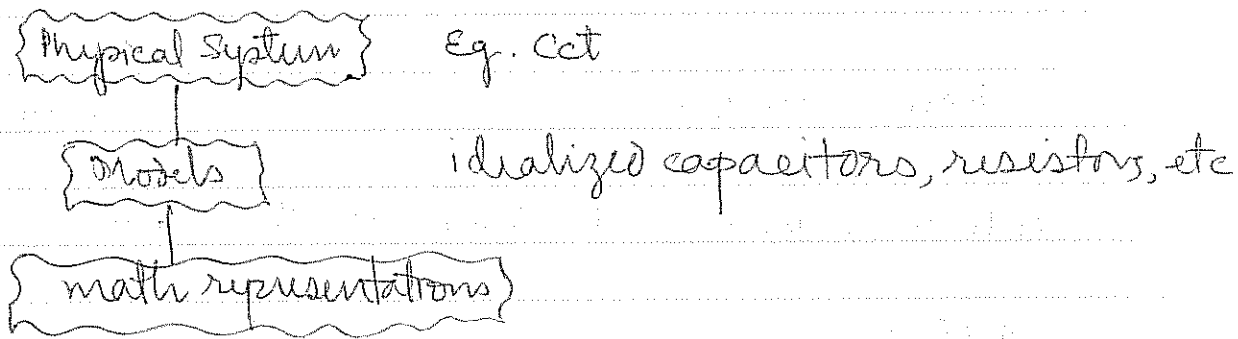 Physical System Eg. Cct
Models idealized capacitors, resistors, etc
math representations